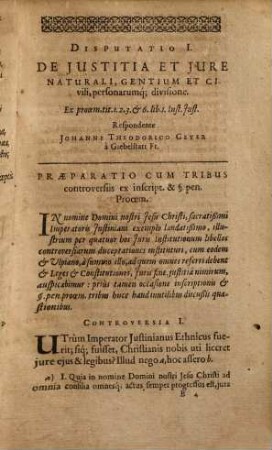 DISPUTATIO I.
DE JUSTITIA ET JURE
NATURALI, GENTIUM ET CI-
vili, personarumq; divisione.
Ex proœm. tit. 1. 2. 3. & 6. lib. 1. Inst. Just.
Respondente
JOHANNE THEODORICO GEYER
à Giebelstatt Fr.
PRÆPARATIO CUM TRIBUS
controversiis ex inscript. & §. pen.
Proœm.
IN nomine Domini nostri Jesu Christi, sacratissimi
Imperatoris Justiniani exemplo laudatissimo, illu-
strium per quatuor hos Juris institutionum libellos
controversiarum disceptationes instituturus, cum eodem
& Ulpiano, à summo illo, ad quem omnes referri debent
& Leges & Constitutiones, Juris sive justitiæ nimirum,
auspicabimur: prius tamen occasione inscriptionis &
§. pen. proœm. tribus hisce haud inutilibus discussis quæ-
stionibus.
CONTROVERSIA I.
UTrùm Imperator Justinianus Ethnicus fue-
rit; sq; fuisset, Christianis nobis uti liceret
jure ejus & legibus? Illud nego a, hoc assero b.
a) I. Quia in nomine Domini nostri Jesu Christi ad
omnia consilia omnesq; actus, semper progressus est, jura
B 4